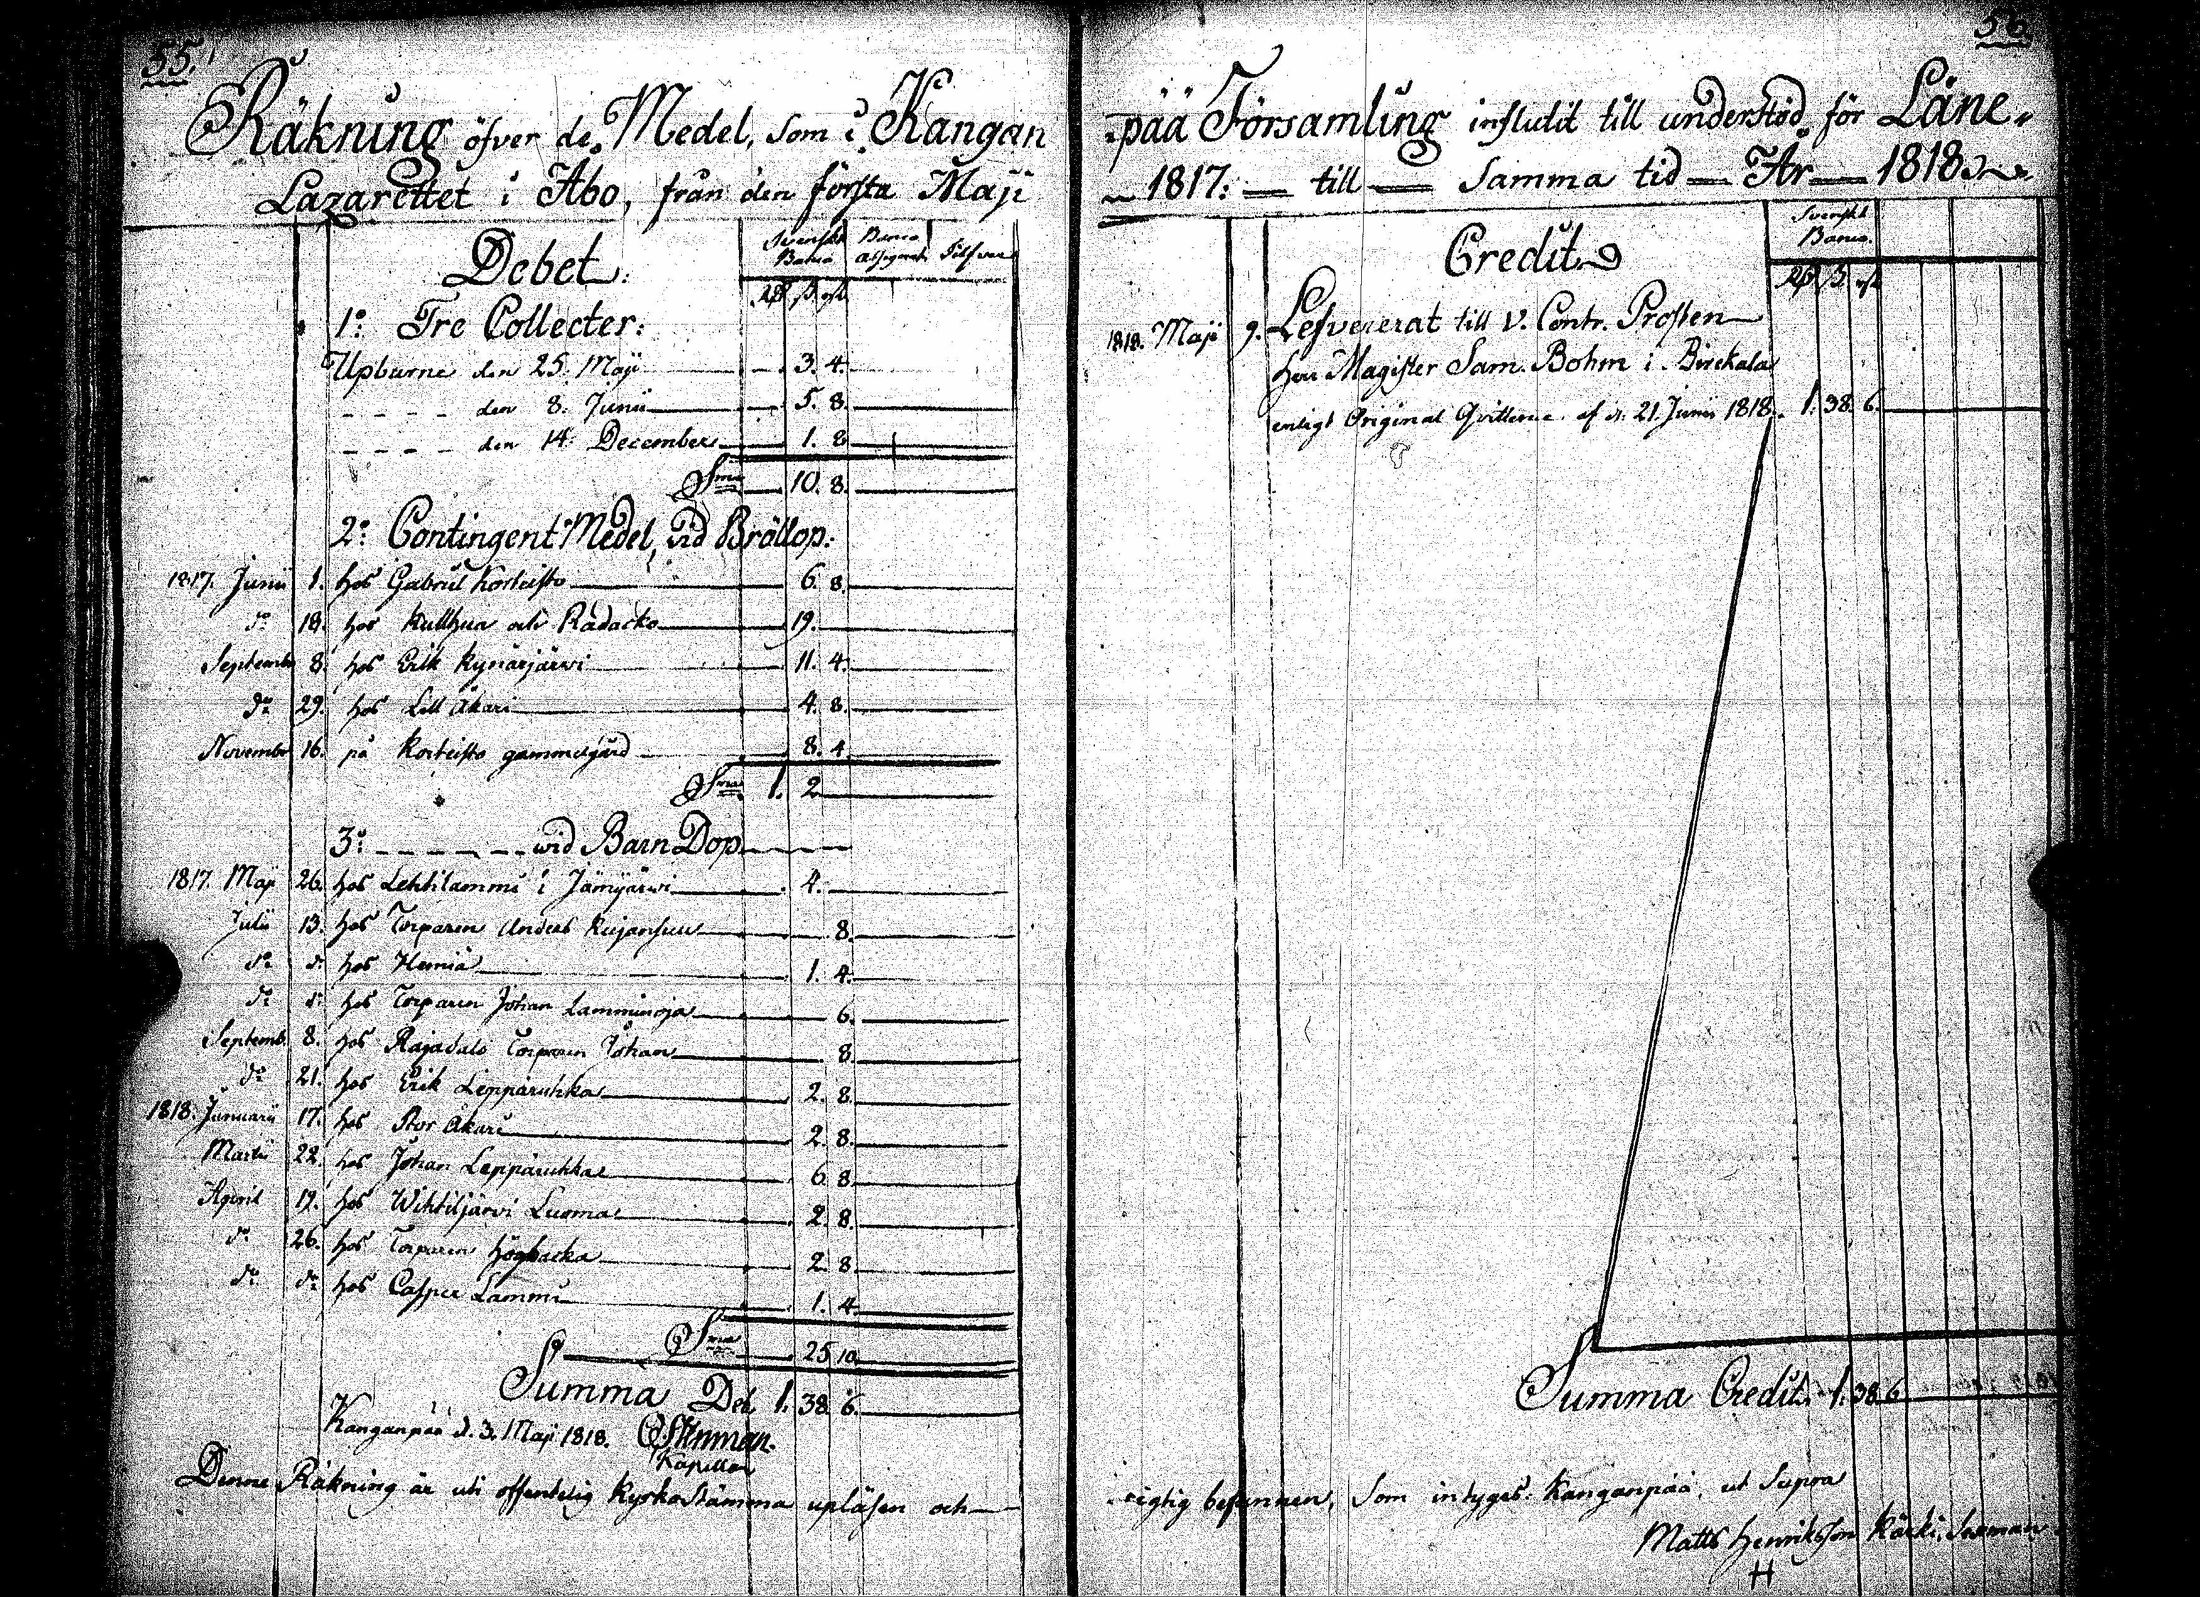 55.
Räkning öfver de Medel, som i Kangan
Lazarettet i Åbo, från den första Maji
Debet.
Svenskt Banco Banco Assignat. Silfver
Rd ß rst.
1:o Tre Collecter:
Upburne den 25. Maji 3. 4.
den 8. Junii 5. 8.
den 14. December 1. 8.
Sma 10. 8.
2:o Contingent Medel, vid Bröllop:
1817. Junii 1. hos Gabriel Korteisto 6. 8.
do 18. hos Kullhua och Rådacko 19.
Septemb. 8. hos Erik Kynäsjärwi 11. 4.
do 29. hos Lill Äkäri 4. 8.
Novembr 16. på Korteisto gammelgård 8. 4.
Sma 1. 2
3:o wid Barn Dop
1817. Maji 26. hos Lehtilammi i Jämijärwi 4.
Julii 13. hos Torparen Anders Kujansuu 8.
do do hos Hemiä 1. 4.
do do hos Torparen Johan Lamminoja 6.
Septemb. 8. hos Rajasalo Torparen Johan 8.
do 21. hos Erik Leppäruhka 2. 8.
1818. Januarii 17. hos Stor Äkäri 2. 8.
Martii 22. hos Johan Leppäruhka 6 8.
April 19. hos Wihtiljärvi Luoma 2. 8.
do 26. hos Torparen Högbacka 2 8.
do do hos Casper Lammi 1. 4.
Sma 25 10
Summa Deb. 1. 38. 6.
Kanganpää d. 3. Maji 1818. Stenman.
Kapellan
Denne Räkning är uti offentelig Kyrkostämma upläsen och
56.
pää Församling influtit till understöd för Läne-
1817. till Samma tid År 1818.
Credit
Svenskt Banco.
Rd ß rst
1818. Maji 9. Lefvererat till V. Contr. Prosten
Herr Magister Sam. Bohm i Birckala
enligt Original Qvittence af d. 21. Junii 1818. 1. 38. 6.
Summa Credit. 1. 38. 6
rigtig befunnen, som intygas. Kanganpää, ut Supra
Matts Henriksson Kärki, Sexman
H